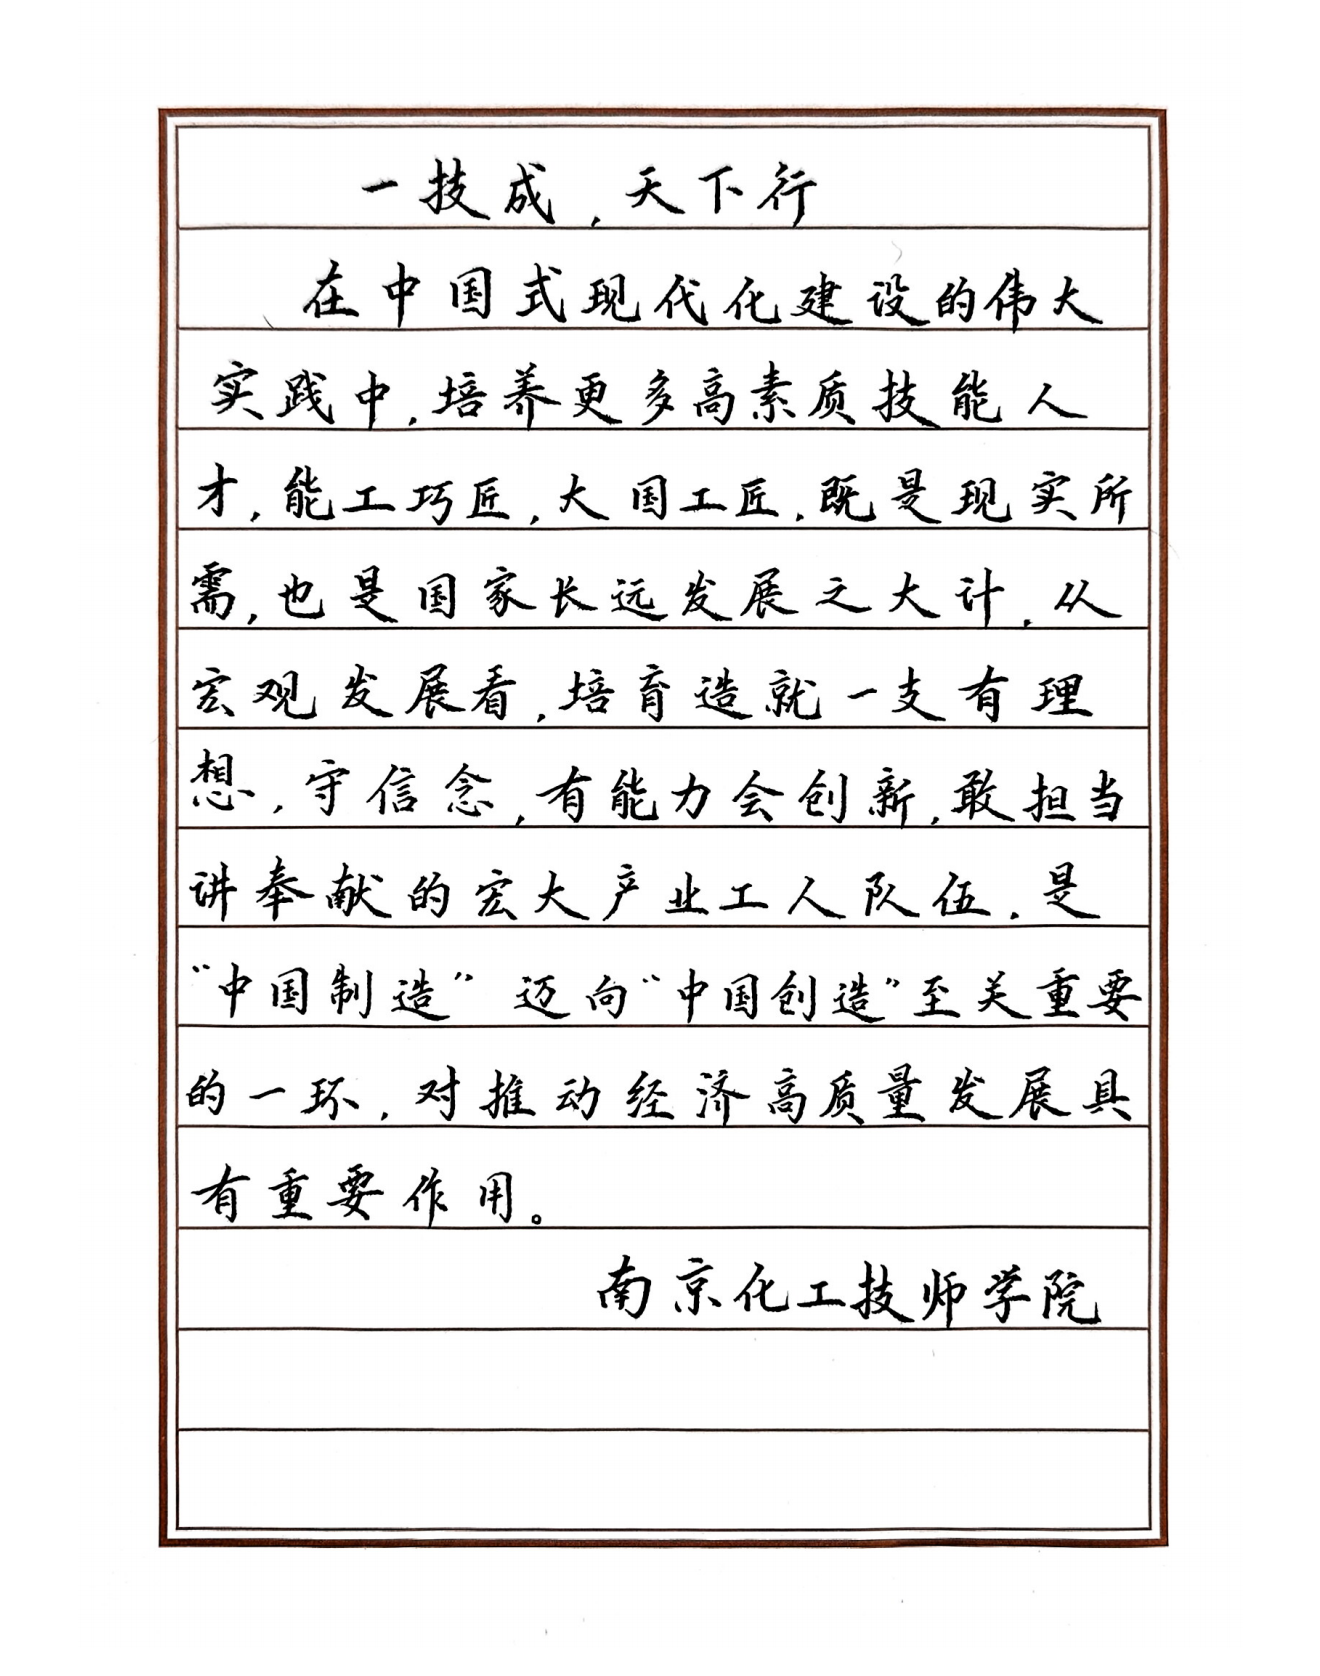 一技成,天下行
在中国式现代化建设的伟大
实践中,培养更多高素质技能人
才,能工巧匠,大国工匠,既是现实所
需,也是国家长远发展之大计,从
宏观发展看,培育造就一支有理
想,守信念,有能力会创新,敢担当
讲奉献的宏大产业工人队伍,是
“中国制造”迈向“中国创造”至关重要
的一环,对推动经济高质量发展具
有重要作用。
南京化工技师学院